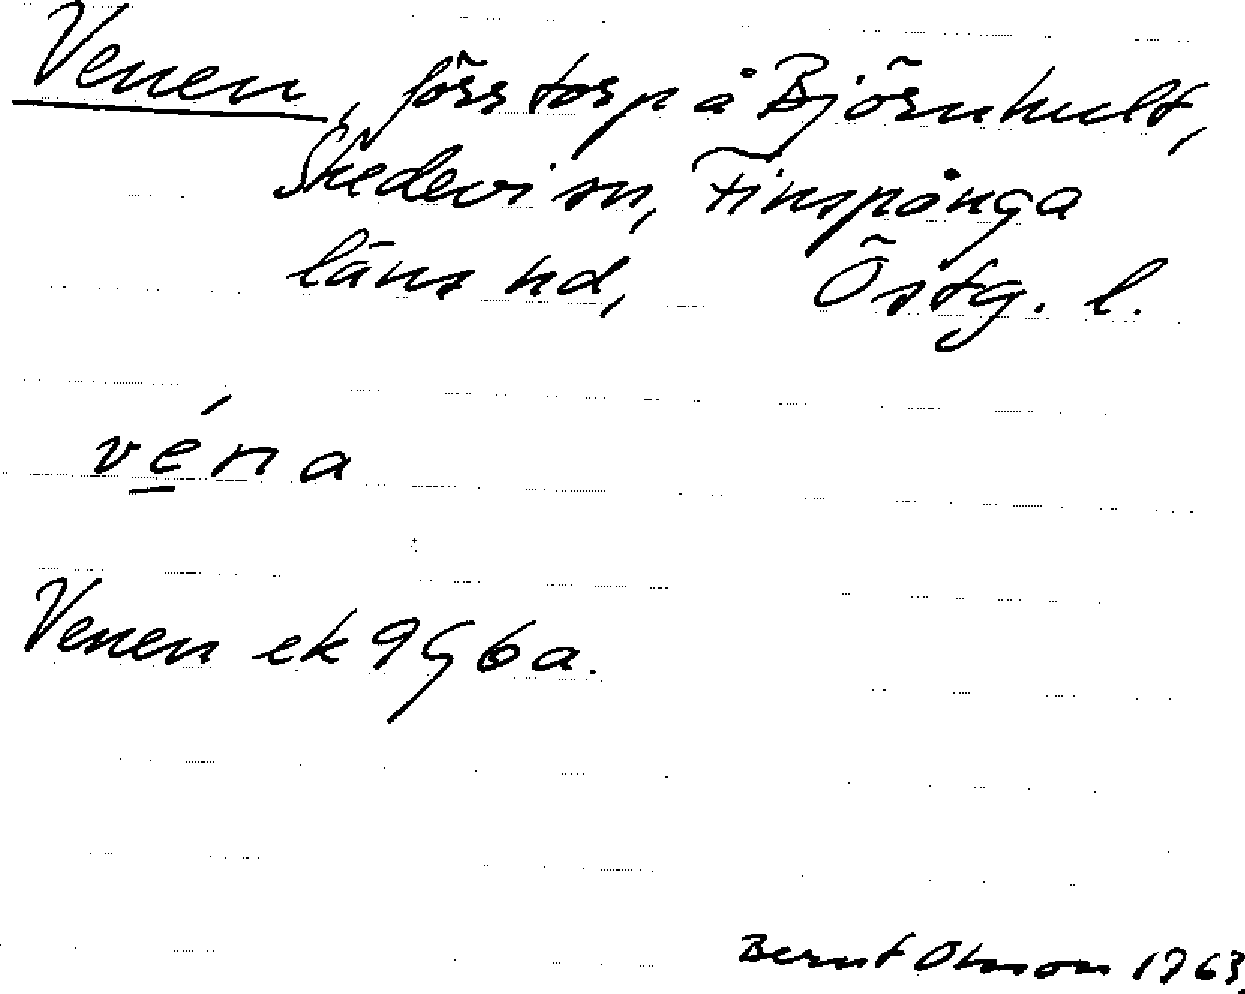 Venen, förr torp å Björnhult,
Skedevi sn, Finspånga
läns hd, Östg. l.
véna
Venen ek 9G6a.
Bernt Olsson 1963.